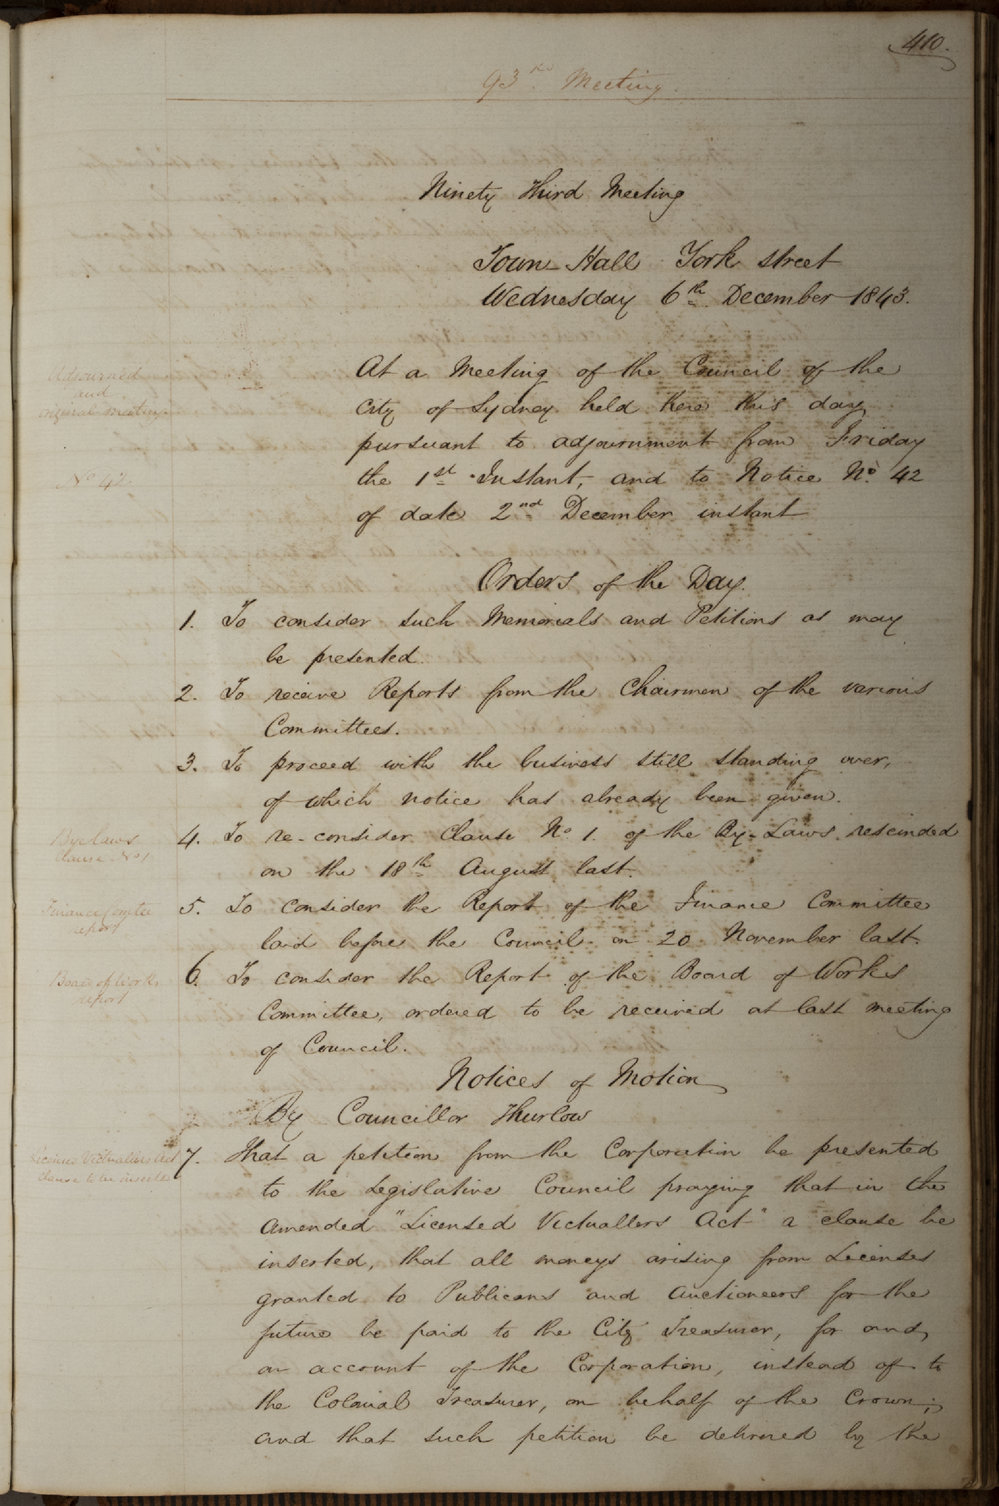 410.
93rd Meeting.
Ninety Third Meeting
Town Hall York street
Wednesday 6th December 1843.
Adjourned
and
original meeting
At a Meeting of the Council of the
City of Sydney held here this day
pursuant to adjournment from Friday
No 42
the 1st Instant, and to Notice No. 42
of date 2nd December instant
Orders of the Day.
1. To consider such Memorials and Petitions as may
be presented.
2. To receive Reports from the Chairmen of the various
Committees.
3. To proceed with the business still standing over,
of which notice has already been given.
Bye laws
Clause No 1
4. To re-consider Clause No 1. of the By-Laws rescinded
on the 18th August last.
Finance Comtee
report
5. To consider the Report of the Finance Committee
laid before the Council on 20 November last.
Board of Works
report
6. To consider the Report of the Board of Works
Committee, ordered to be received at last meeting
of Council.
Notices of Motion
By Councillor Thurlow
Licensed Victuallers Act
Clause to be inserted
7. That a petition from the Corporation be presented
to the Legislative Council praying that in the
Amended "Licensed Victuallers Act" a clause be
inserted, that all moneys arising from Licenses
granted to Publicans and Auctioneers for the
future be paid to the City Treasurer, for and,
on account of the Corporation, instead of to
the Colonial Treasurer, on behalf of the Crown;
and that such petition be delivered by the